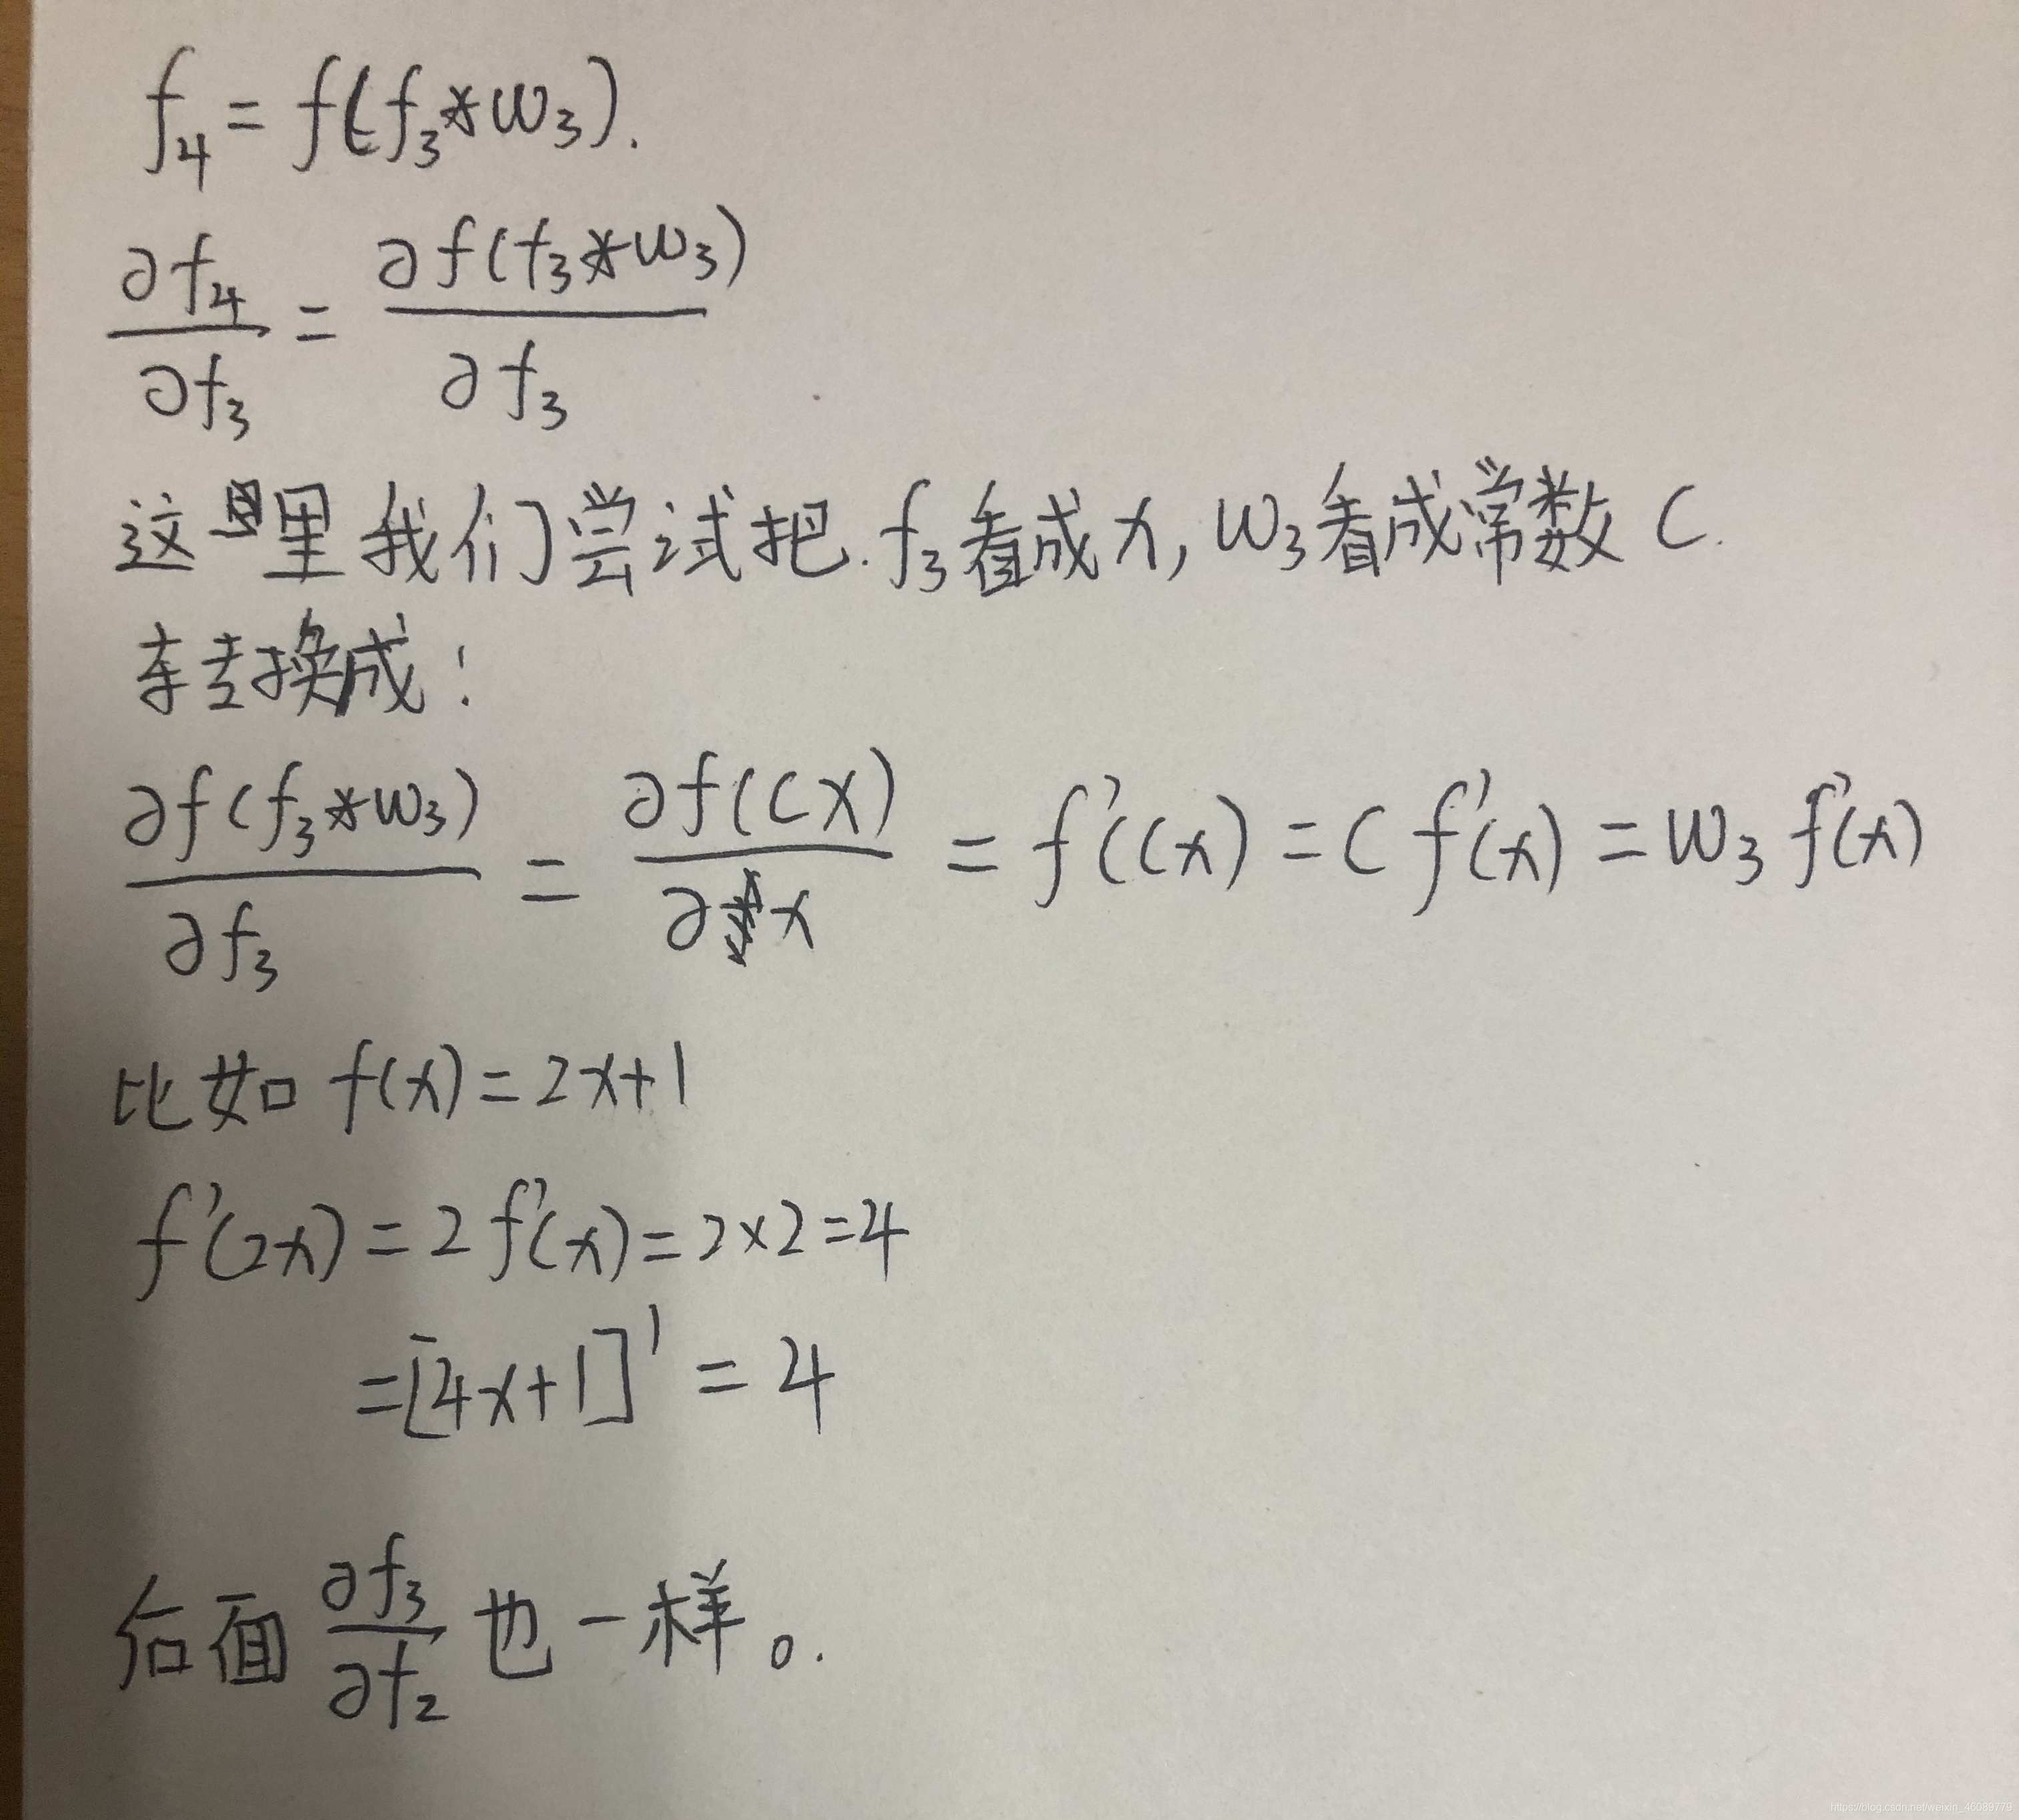 f₄ = f(f₃*w₃).
∂f₄/∂f₃ = ∂f(f₃*w₃)/∂f₃
这里我们尝试把 f₃看成x, w₃看成常数 C.
转换成:
∂f(f₃*w₃)/∂f₃ = ∂f(Cx)/∂x = f'(Cx) = C f'(x) = w₃ f'(x)
比如 f(x) = 2x+1
f'(2x) = 2 f'(x) = 2×2 = 4
= [4x+1]' = 4
后面 ∂f₃/∂f₂ 也一样。
https://blog.csdn.net/weixin_46089779